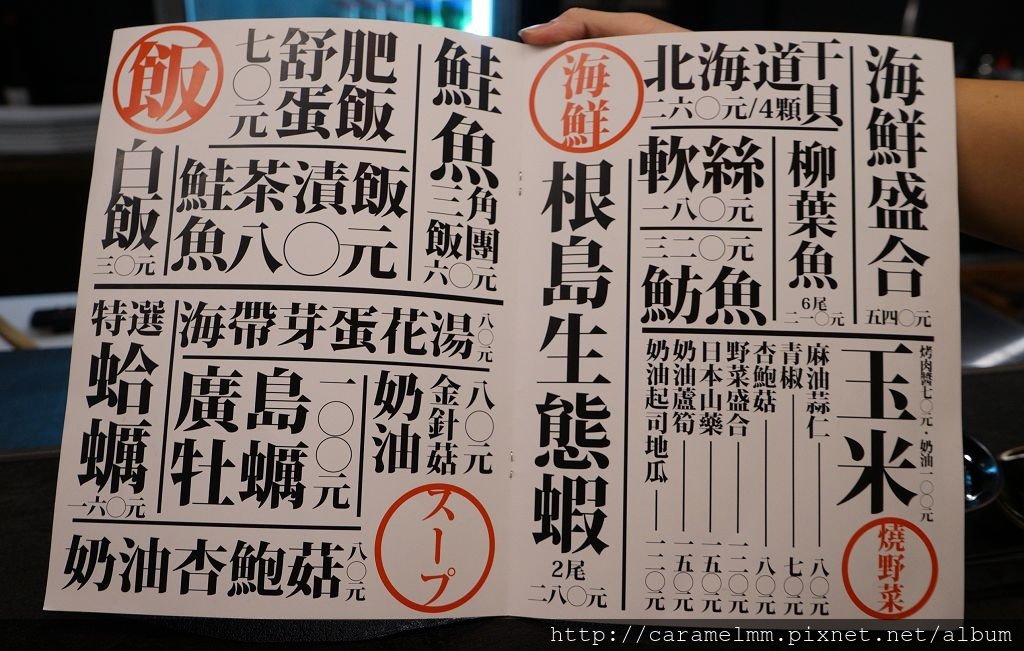 海鮮盛合
五四〇元
北海道干貝
二六〇元/4顆
柳葉魚
6尾
二一〇元
軟絲
一八〇元
三二〇元
魴魚
海鮮
根島生態蝦
2尾
二八〇元
玉米
烤肉醬七〇元・奶油一〇〇元
燒野菜
麻油蒜仁 八〇元
青椒 七〇元
杏鮑菇 八〇元
野菜盛合 一二〇元
日本山藥 一五〇元
奶油蘆筍 一五〇元
奶油起司地瓜 一二〇元
飯
鮭魚三角飯團
六〇元
肥舒蛋飯
七〇元
鮭魚茶漬飯八〇元
白飯
三〇元
海帶芽蛋花湯
八〇元
特選蛤蠣
一六〇元
廣島牡蠣
一〇〇元
奶油金針菇
八〇元
奶油杏鮑菇
八〇元
スープ
http://caramelmm.pixnet.net/album